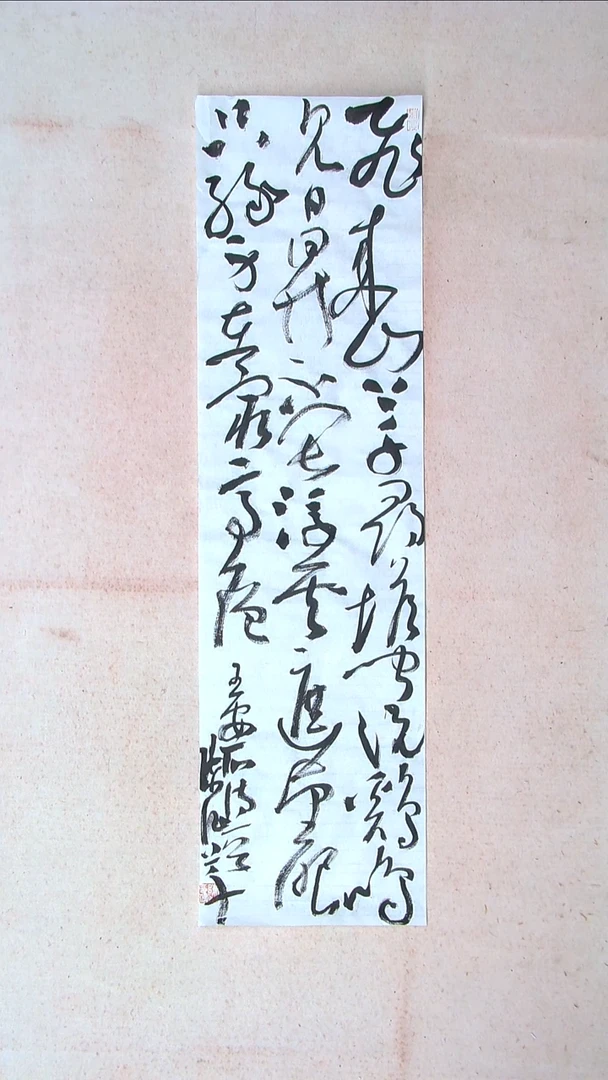 飛來山上千尋塔聞說鷄鳴
見日昇不畏浮雲遮望眼
只緣身在最高層
王安石詩